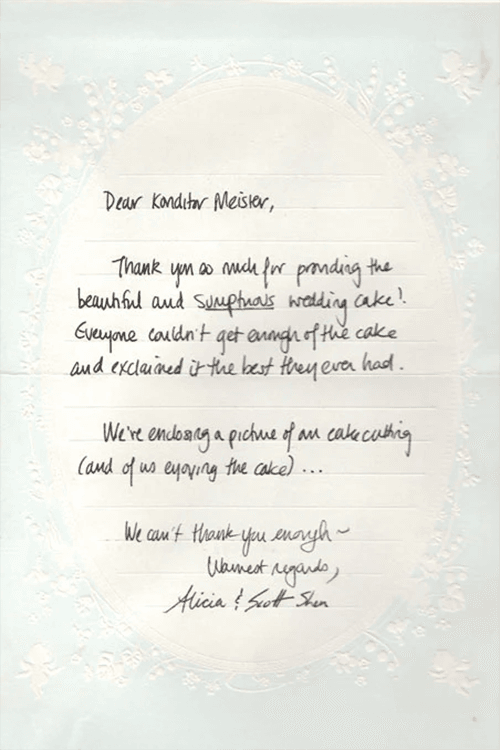 Dear Konditor Meister,
Thank you so much for providing the
beautiful and sumptuous wedding cake!
Everyone couldn't get enough of the cake
and exclaimed it the best they ever had.
We're enclosing a picture of our cake cutting
(and of us enjoying the cake) ...
We can't thank you enough ~
Warmest regards,
Alicia & Scott Shen